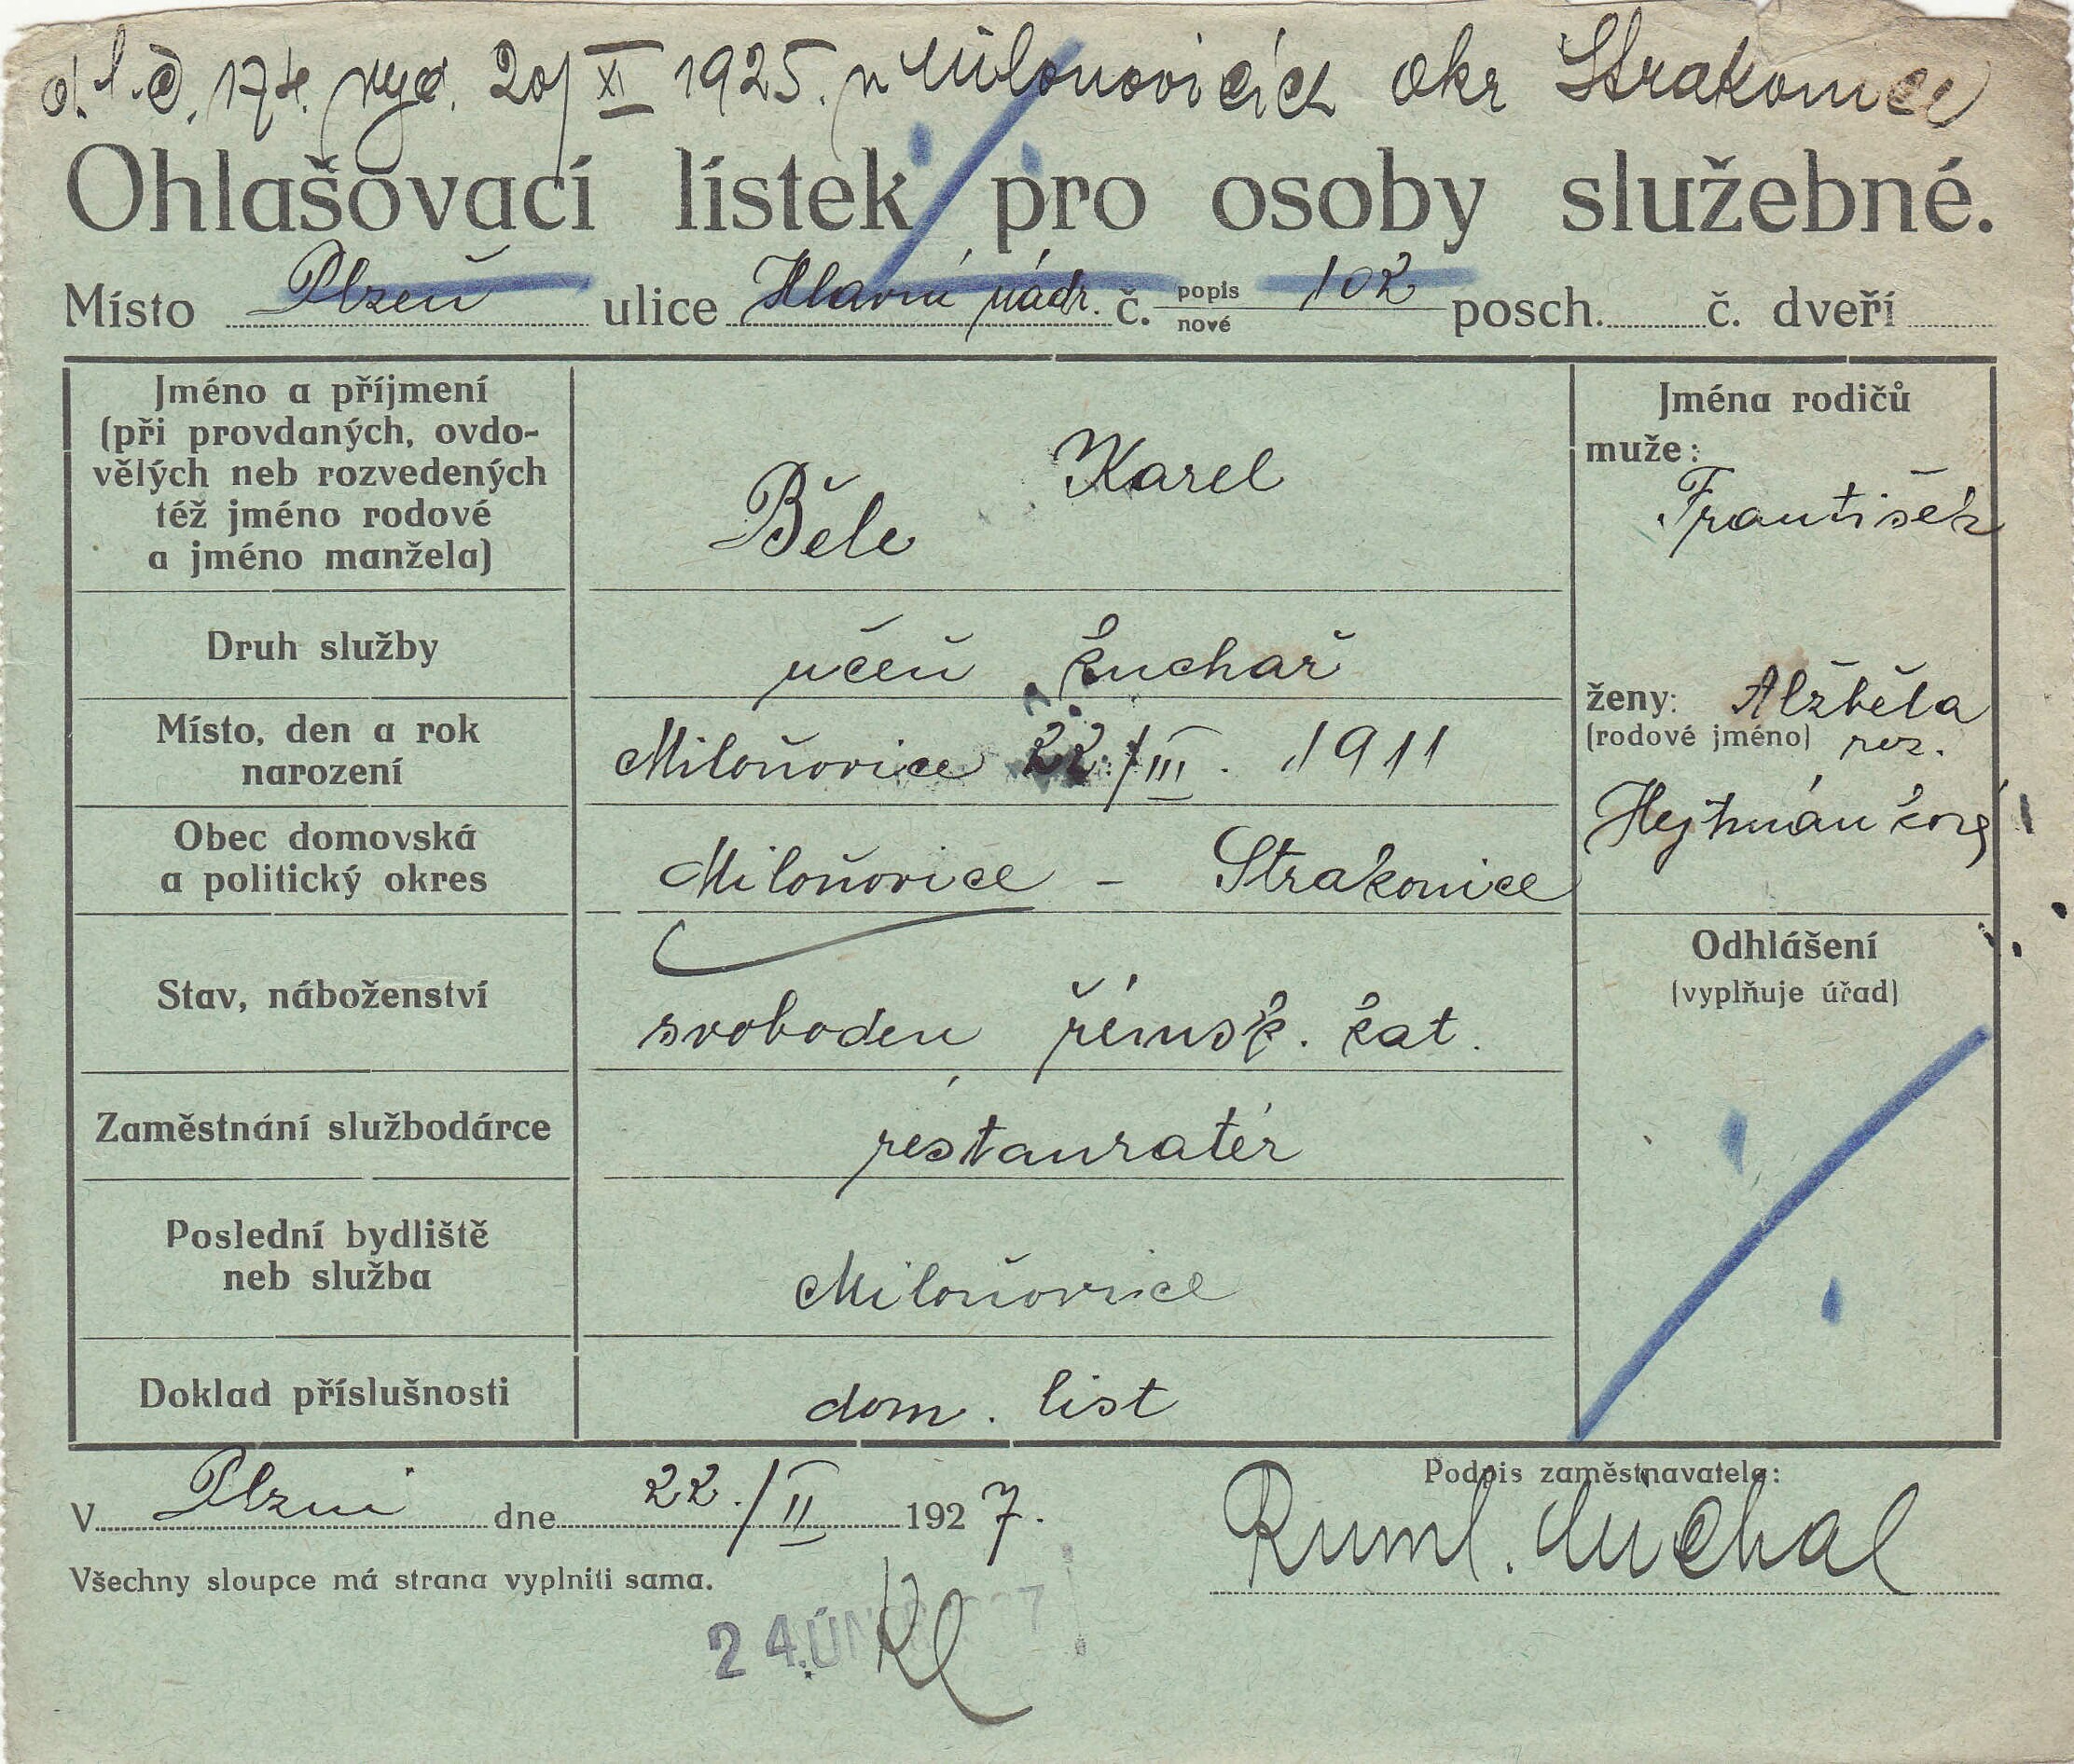 d. l. č. 174. vyd. 20/XI 1925. v Miloňovicích okr Strakonice
Ohlašovací lístek pro osoby služebné.
Místo Plzeň ulice Hlavní nádr. č. popis 102 posch. č. dveří
nové
Jméno a příjmení
(při provdaných, ovdo-
vělých neb rozvedených
též jméno rodové
a jméno manžela)
Běle Karel
Jména rodičů
muže:
František
Druh služby
učeň kuchař
ženy: Alžběta
(rodové jméno) roz.
Hejtmánková
Místo, den a rok
narození
Miloňovice 22./III. 1911
Obec domovská
a politický okres
Miloňovice - Strakonice
Odhlášení
(vyplňuje úřad)
Stav, náboženství
svoboden římsk. kat.
Zaměstnání službodárce
restauratér
Poslední bydliště
neb služba
Miloňovice
Doklad příslušnosti
dom. list
V Plzni dne 22./II 1927.
Podpis zaměstnavatele:
Ruml. Michal
Všechny sloupce má strana vyplniti sama.
24. ÚN 7